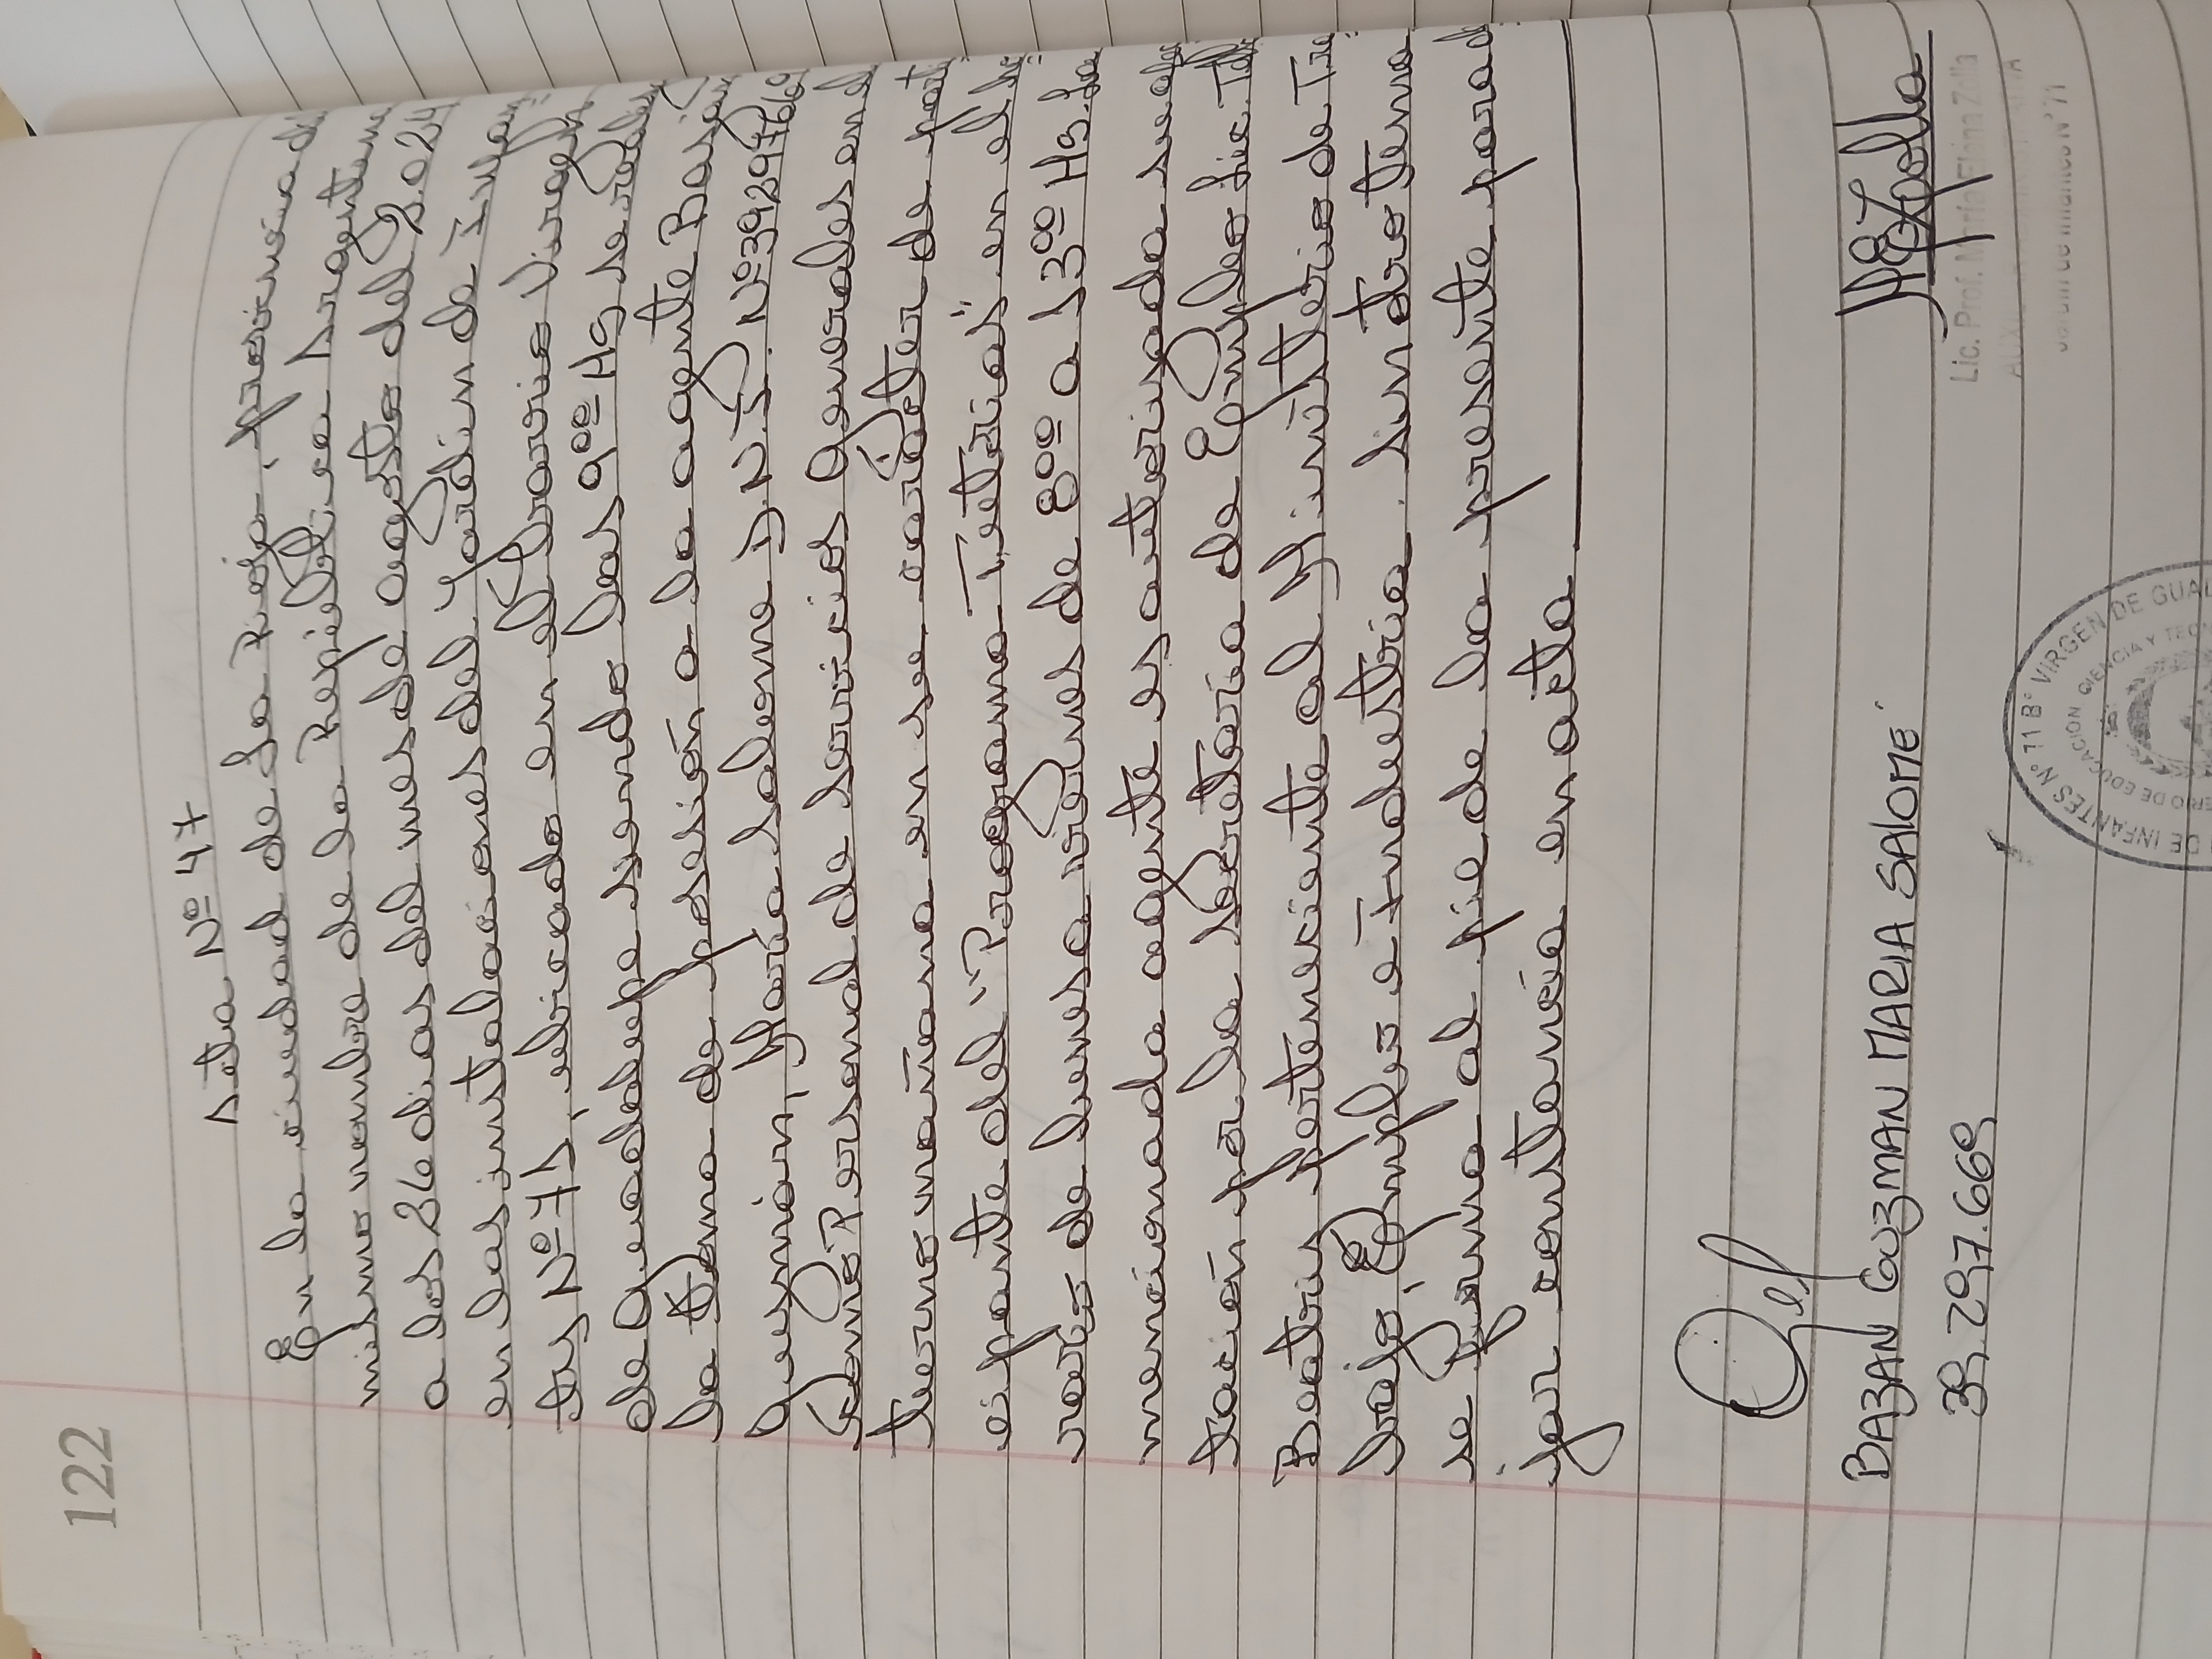 122
Acta Nº 47
En la ciudad de La Rioja, provincia del
mismo nombre de la República Argentina
a los 26 días del mes de agosto del 2.024
en las instalaciones del Jardín de Infan
tes Nº 71, ubicado en el barrio Virgen
de Guadalupe siendo las 9ºº Hs se realiza
la toma de posesión a la agente Bazán
Guzmán, María Salomé D.N.I. Nº 39297669
como Personal de Servicios Generales en el
turno mañana en
cipante del "Programa
rario de lunes a viernes de 8ºº a 13ºº Hs. La
mencionada agente es autorizada su
por la Secretaría de Empleo Lic.
Beatriz perteneciente al Ministerio de Tra
bajo, Empleo e Industria. Sin otro tema
se firma al pie de la presente para de
jar constancia en acta
BAZAN GUZMAN MARIA SALOMÉ
39.297.669
Lic. Prof. María Elena Zolla
Jardín de Infantes Nº 71
DE INFANTES Nº 71 Bº VIRGEN DE GUAL
ERIO DE EDUCACION CIENCIA Y TECN